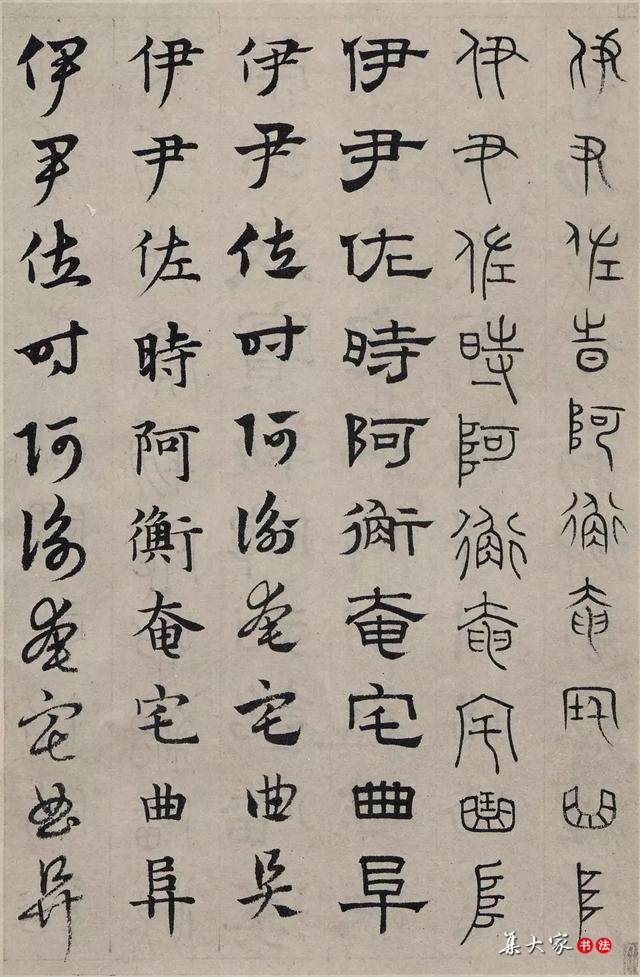 伊尹佐時阿衡奄宅曲阜
伊尹佐時阿衡奄宅曲阜
伊尹佐時阿衡奄宅曲阜
伊尹佐时阿衡奄宅曲阜
伊尹佐時阿衡奄宅曲阜
伊尹佐时阿衡奄宅曲阜
集大家书法